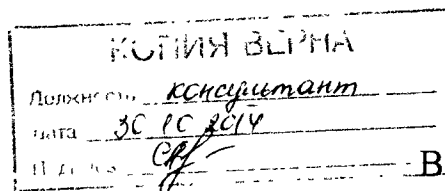 КОПИЯ ВЕРНА
Должность консультант
дата 30 10 2014
Подпись
В